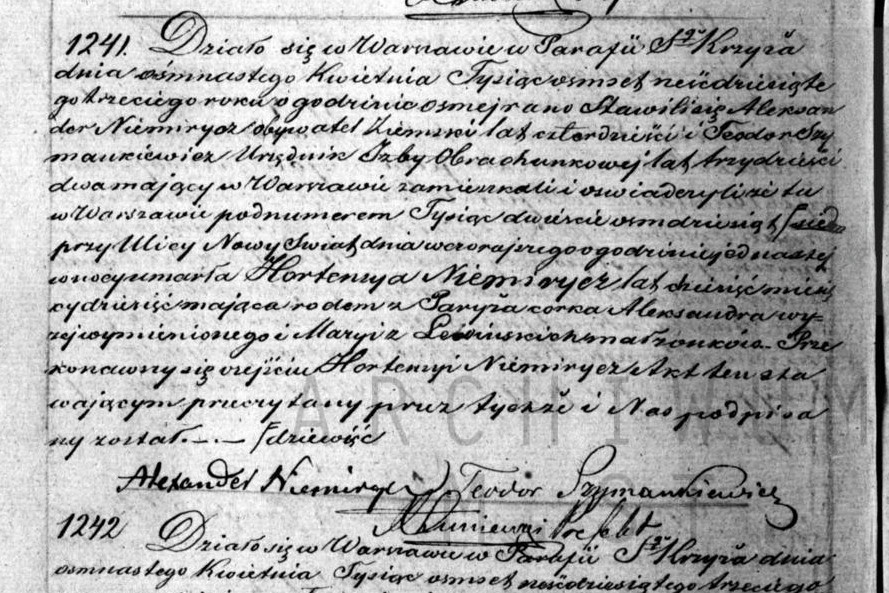 1241. Działo się w Warszawie w Parafii Sgo Krzyża
dnia ośmnastego Kwietnia Tysiąc ośmset sześćdziesiąte
go trzeciego roku o godzinie osmej rano Stawili się Aleksan
der Niemirycz obywatel Ziemski lat czterdzieści i Teodor Szy
mankiewicz Urzędnik Izby Obrachunkowej lat trzydzieści
dwa mający w Warszawie zamieszkali i oswiadczyli że tu
w Warszawie pod numerem Tysiąc dwieście osmdziesiąt
przy Ulicy Nowy Swiat dnia wczorajszego o godzinie jednastej
w nocy umarła Hortensya Niemirycz lat dziesięć miesię
cy dziesięć mająca rodem z Paryża córka Aleksandra wy-
zej wymienionego i Maryi z małzonków. Prze
konawszy się o zejściu Hortensyi Niemirycz Akt ten sta
wającym przeczytany przez tychże i Nas podpisa
ny został. – . – /dziewięć
Alexander Niemirycz Teodor Szymankiewicz
1242 Działo się w Warszawie w Parafii Sgo Krzyża dnia
osmnastego Kwietnia Tysiąc osmset sześćdziesiątego trzeciego
ARCHIWUM